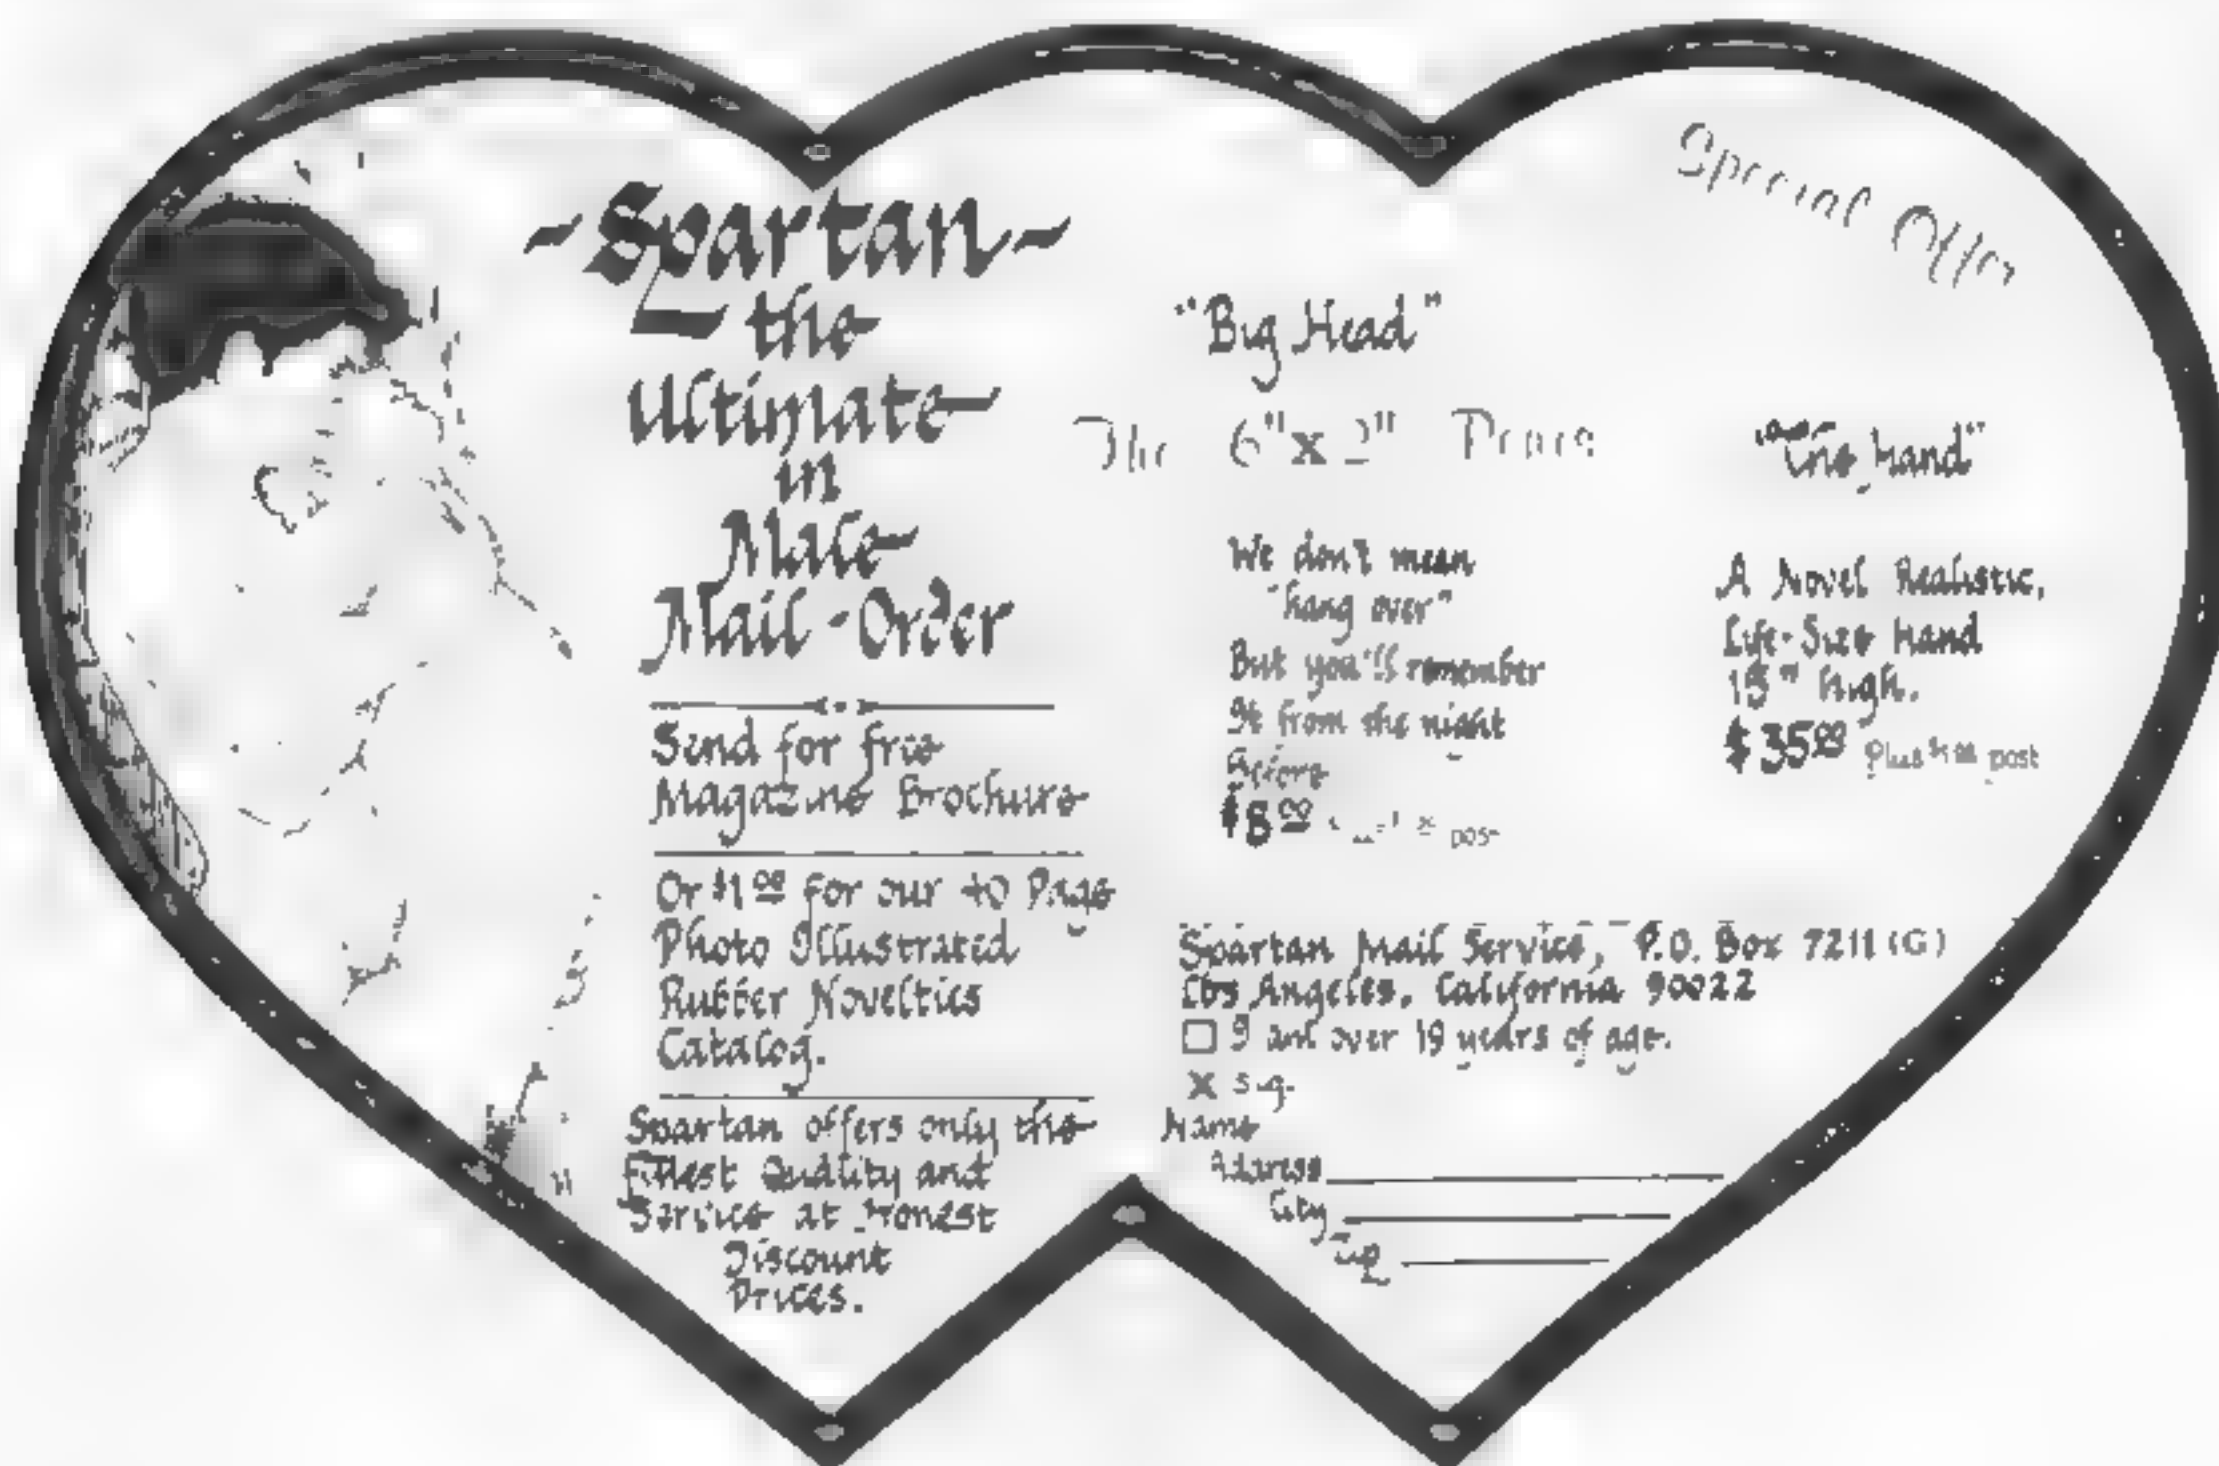 ~Spartan~
the
Ultimate
in
Male
Mail-Order
Send for free
Magazine Brochure
Or $1.00 for our 40 Page
Photo Illustrated
Rubber Novelties
Catalog.
Spartan offers only the
Finest Quality and
Service at Honest
Discount
Prices.
"Big Head"
The 6" x 2"
We don't mean
"hang over"
But you'll remember
It from the night
Before
$8.00 post
Special Offer
"The Hand"
A Novel Realistic,
Life-Size Hand
15" high.
$35.00 Plus post
Spartan Mail Service, P.O. Box 7211 (G)
Los Angeles, California 90022
□ I am over 19 years of age.
X Sig.
Name
Address
City
Zip